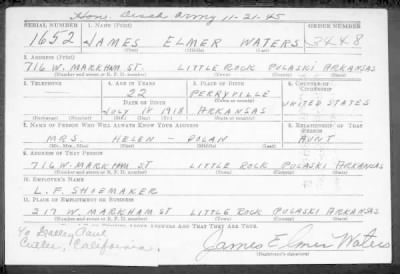 Hon. Disch Army 11-21-45
SERIAL NUMBER 1. NAME (Print) ORDER NUMBER
1652 JAMES ELMER WATERS 3448
(First) (Middle) (Last)
2. ADDRESS (Print)
716 W. MARKHAM ST. LITTLE ROCK PULASKI ARKANSAS
(Number and street or R. F. D. number) (Town) (County) (State)
3. TELEPHONE 4. AGE IN YEARS 5. PLACE OF BIRTH 6. COUNTRY OF CITIZENSHIP
22 PERRYVILLE
DATE OF BIRTH (Town or county) UNITED STATES
JULY 18 1918 ARKANSAS
(Exchange) (Number) (Mo.) (Day) (Yr.) (State or country)
7. NAME OF PERSON WHO WILL ALWAYS KNOW YOUR ADDRESS 8. RELATIONSHIP OF THAT PERSON
MRS. HELEN - DOLAN AUNT
(Mr., Mrs., Miss) (First) (Middle) (Last)
9. ADDRESS OF THAT PERSON
716 W. MARKHAM ST LITTLE ROCK PULASKI ARKANSAS
(Number and street or R. F. D. number) (Town) (County) (State)
10. EMPLOYER'S NAME
L. F. SHOEMAKER
11. PLACE OF EMPLOYMENT OR BUSINESS
217 W. MARKHAM ST LITTLE ROCK PULASKI ARKANSAS
(Number and street or R. F. D. number) (Town) (County) (State)
ABOVE ANSWERS AND THAT THEY ARE TRUE.
California
James Elmer Waters
(Registrant's signature)